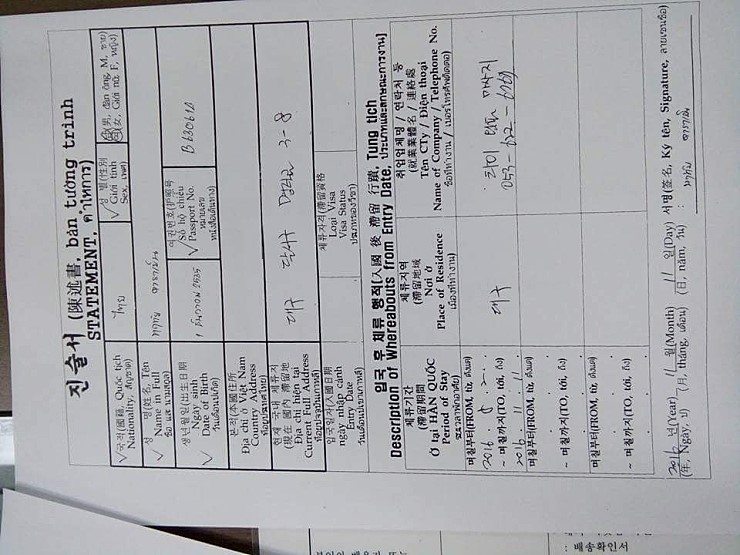 진 술서 (陳述書, bản tường trình
STATEMENT, คำให้การ)
국적(國籍, Quốc tịch
Nationality, สัญชาติ)
ไทย
성 별(性別
Giới tính
Sex, เพศ)
남(男, đàn ông, M, ชาย)
여(女, Giới nữ F, หญิง)
성 명(姓名, Tên
Name in Full
ชื่อ และ นามสกุล)
생년월일(出生日期
Ngày sinh
Date of Birth
วันเดือนปีเกิด)
1 ธันวาคม 2525
여권번호(护照号
Số hộ chiếu
Passport No.
หมายเลข
หนังสือเดินทาง)
B630610
본적(本國住所
Địa chỉ ở Việt Nam
Country Address
ที่อยู่ประเทศไทย)
현재 국내 체류지
(現在 國內 滯留地
Địa chỉ hiện tại
Current Full Address
ที่อยู่ปัจจุบันในเกาหลี)
대구 달서구 3-8
입국일자(入國日期
ngày nhập cảnh
Entry Date
วันเดือนปีเข้าเกาหลี)
체류자격(滯留資格
Loại Visa
Visa Status
ประเภทของวีซ่า)
입국 후 체류 행적(入國 後 滯留 行蹟, Tung tích
Description of Whereabouts from Entry Date, ประวัติการทำงาน)
체류기간
(滯留期間
Ở tại HÀN QUỐC
Period of Stay
체류지역
(滯留地域
Nơi ở
Place of Residence
เมืองที่ทำงาน)
취업업체명 / 연락처 등
(就業業體名 / 連絡處
Tên CTy / Điện thoại
Name of Company / Telephone No.
ชื่อที่ทำงาน / เบอร์โทรศัพท์ติดต่อ)
며칠부터(FROM, từ, ตั้งแต่)
2016. 8. 2.
~ 며칠까지(TO, tới, ถึง)
2016. 11. 11
대구
타이 마사지
며칠부터(FROM, từ, ตั้งแต่)
~ 며칠까지(TO, tới, ถึง)
며칠부터(FROM, từ, ตั้งแต่)
~ 며칠까지(TO, tới, ถึง)
2016 년(Year) 11 월(Month) 11 일(Day) 서명(签名, Ký tên, Signature, ลายเซนชื่อ)
(年, Ngày, ปี) (月, tháng, เดือน) (日, năm, วัน) :
: 배송확인서